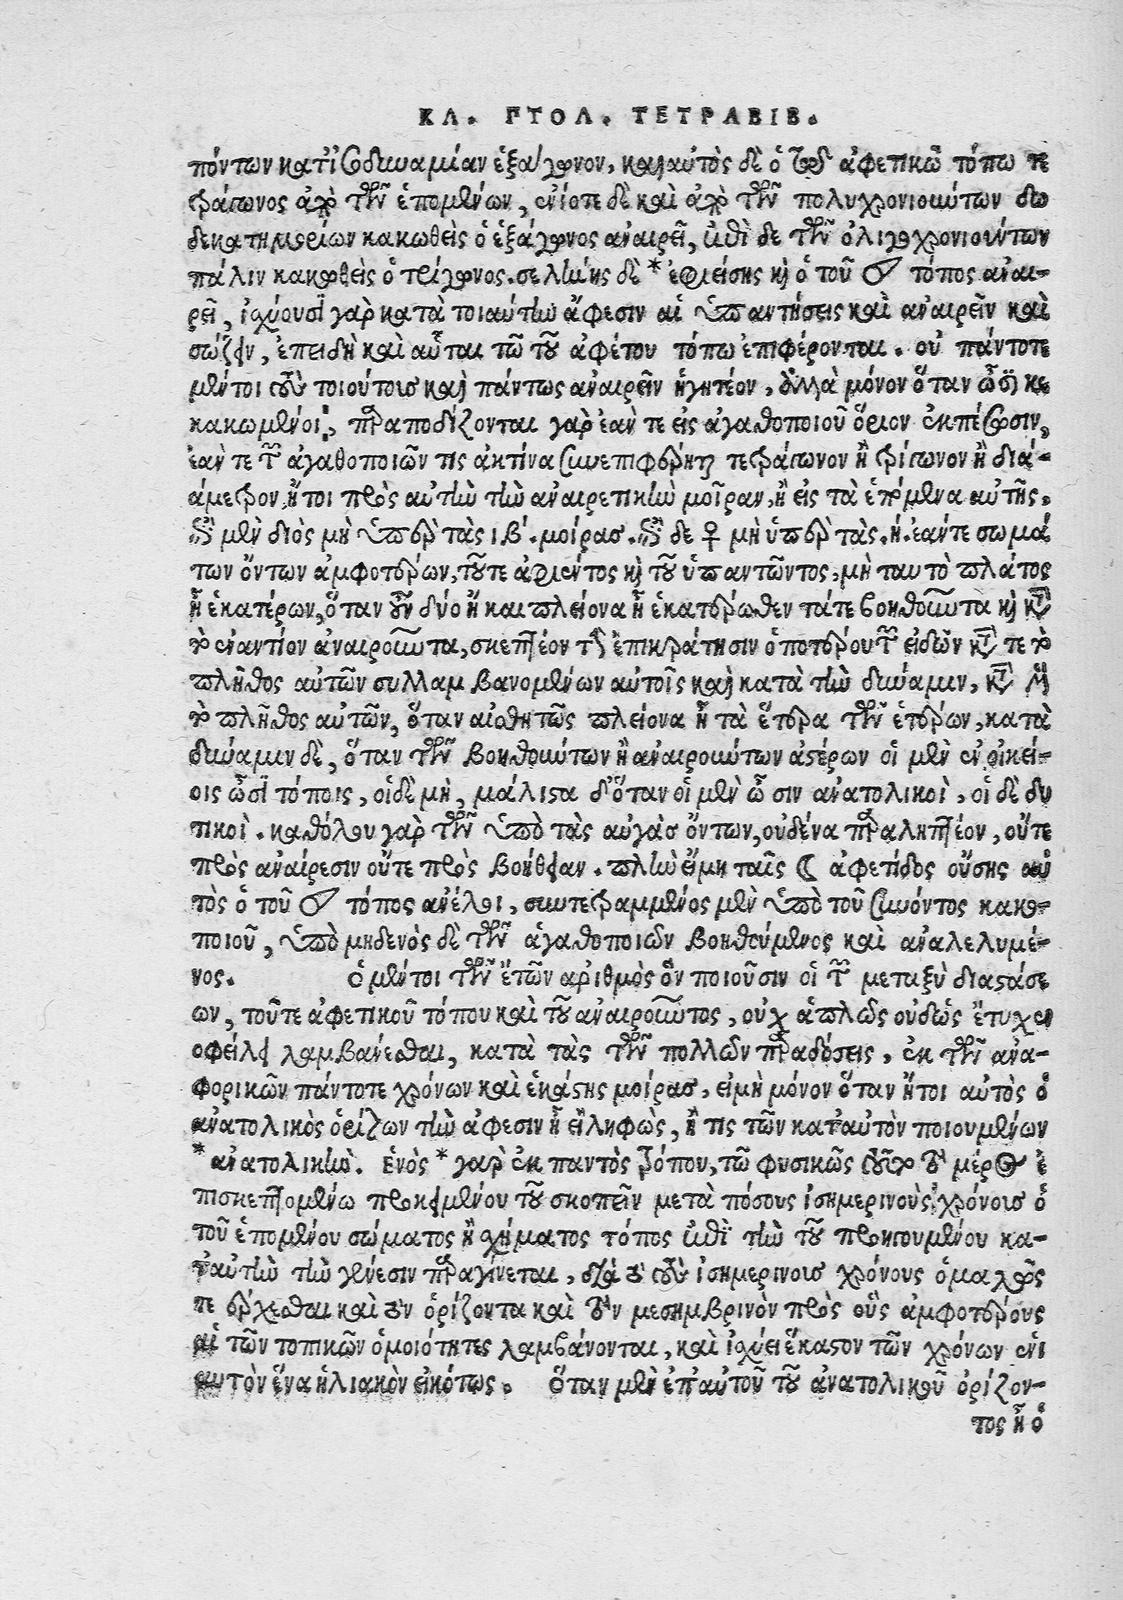 ΚΛ. ΠΤΟΛ. ΤΕΤΡΑΒΙΒ.
πόντων κατ' ἰσοδυναμίαν ἑξάγωνον, καὶ αὐτὸς δὲ ὁ τῷ ἀφετικῷ τόπῳ τε
τράγωνος ἀπὸ τῶν ἑπομένων, ἐνίοτε δὲ καὶ ἀπὸ τῶν πολυχρονιούντων δω
δεκατημορίων κακωθεὶς ὁ ἑξάγωνος ἀναιρεῖ, ἐπὶ δε τῶν ὀλιγοχρονιούντων
πάλιν κακωθεὶς ὁ τρίγωνος. σελήνης δὲ * ἐφιείσης καὶ ὁ τοῦ ☉ τόπος ἀναι-
ρεῖ, ἰσχύουσι γὰρ κατὰ τοιαύτην ἄφεσιν αἱ ὑπαντήσεις καὶ ἀναιρεῖν καὶ
σώζειν, ἐπειδὴ καὶ αὗται τῷ τοῦ ἀφέτου τόπῳ ἐπιφέρονται. οὐ πάντοτε
μέντοι σὺν τοιούτοις καὶ πάντως ἀναιρεῖν ἡγητέον, ἀλλὰ μόνον ὅταν ὦσι κε
κακωμένοι, παραποδίζονται γὰρ ἐάν τε εἰς ἀγαθοποιοῦ ὅριον ἐκπέσωσιν,
ἐάν τε τῶν ἀγαθοποιῶν τις ἀκτίνα συνεπιφέρῃ τετράγωνον ἢ τρίγωνον ἢ διά-
άμετρον, ἤτοι πρὸς αὐτὴν τὴν ἀναιρετικὴν μοῖραν, ἢ εἰς τὰ ἑπόμενα αὐτῆς.
ἐπὶ μὲν διὸς μὴ ὑπὲρ τὰς ιβ΄. μοίρας. ἐπὶ δε ♀ μὴ ὑπὲρ τὰς. η. ἐάντε σωμά
των ὄντων ἀμφοτέρων, τοῦτε ἀφιέντος καὶ τοῦ ὑπαντῶντος, μὴ ταυτὸ πλάτος
ᾖ ἑκατέρων, ὅταν οὖν δύο ἢ και πλείονα ᾖ ἑκατέρωθεν τάτε βοηθοῦντα καὶ κατὰ
τὸ ἐναντίον ἀναιροῦντα, σκεπτέον τὴν ἐπικράτησιν ὁποτέρου τῶν εἰδῶν κατά τε τὸ
πλῆθος αὐτῶν συλλαμβανομένων αὐτοῖς καὶ κατὰ τὴν δύναμιν, κατὰ μὲν
τὸ πλῆθος αὐτῶν, ὅταν αἰσθητῶς πλείονα ᾖ τὰ ἕτερα τῶν ἑτέρων, κατὰ
δύναμιν δὲ, ὅταν τῶν βοηθούντων ἢ ἀναιρούντων ἀστέρων οἱ μὲν ἐν οἰκεί-
οις ὦσι τόποις, οἱ δὲ μὴ, μάλιστα δ' ὅταν οἱ μὲν ὦσιν ἀνατολικοὶ, οἱ δὲ δυ
τικοὶ. καθόλου γὰρ τῶν ὑπὸ τὰς αὐγὰς ὄντων, οὐδένα παραληπτέον, οὔτε
πρὸς ἀναίρεσιν οὔτε πρὸς βοήθειαν. πλὴν εἴμη ταῖς ☾ ἀφετίδος οὔσης αὐ
τὸς ὁ τοῦ ☉ τόπος ἀνέλοι, συντετραμμένος μὲν ὑπὸ τοῦ συνόντος κακο-
ποιοῦ, ὑπὸ μηδενὸς δὲ τῶν ἀγαθοποιῶν βοηθούμενος καὶ ἀναλελυμέ-
νος. Ὁ μέντοι τῶν ἐτῶν ἀριθμὸς ὃν ποιοῦσιν οἱ τῶν μεταξὺ διαστάσε
ων, τοῦτε ἀφετικοῦ τόπου καὶ τοῦ ἀναιροῦντος, οὐχ ἁπλῶς οὐδ' ὡς ἔτυχεν
οφείλει λαμβάνεσθαι, κατὰ τὰς τῶν πολλῶν παραδόσεις, ἐκ τῶν ἀνα-
φορικῶν πάντοτε χρόνων καὶ ἑκάστης μοίρας, εἰμὴ μόνον ὅταν ἤτοι αὐτὸς ὁ
ἀνατολικὸς ὁρίζων τὴν ἀφεσιν ᾖ εἰληφὼς, ἤ τις τῶν κατ' αὐτὸν ποιουμένων
* ἀνατολικήν. Ἑνὸς * γὰρ ἐκ παντὸς τρόπου, τῷ φυσικῶς τοῦτο τὸ μέρος ἐ
πισκεπτομένῳ προκειμένου τοῦ σκοπεῖν μετὰ πόσους ἰσημερινοὺς χρόνους ὁ
τοῦ ἑπομένου σώματος ἢ σχήματος τόπος ἐπὶ τὴν τοῦ προηγουμένου κα-
τ' αὐτὴν τὴν γένεσιν παραγίνεται, διὰ τὸ τοὺς ἰσημερινοὺς χρόνους ὁμαλῶς
τε ἔρχεσθαι καὶ τὸν ὁρίζοντα καὶ τὸν μεσημβρινὸν πρὸς οὓς ἀμφοτέρους
αἱ τῶν τοπικῶν ὁμοιότητες λαμβάνονται, καὶ ἰσχύει ἕκαστον τῶν χρόνων ἐνι
αυτὸν ἕνα ἡλιακὸν εἰκότως. Ὅταν μὲν ἐπ' αὐτοῦ τοῦ ἀνατολικοῦ ὁρίζον-
τος ᾖ ὁ